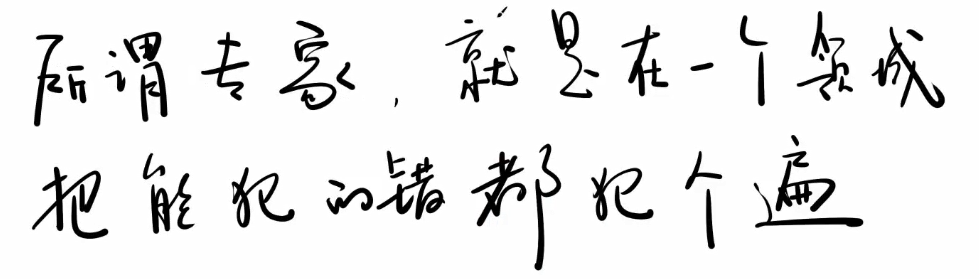 所谓专家，就是在一个领域
把能犯的错都犯个遍